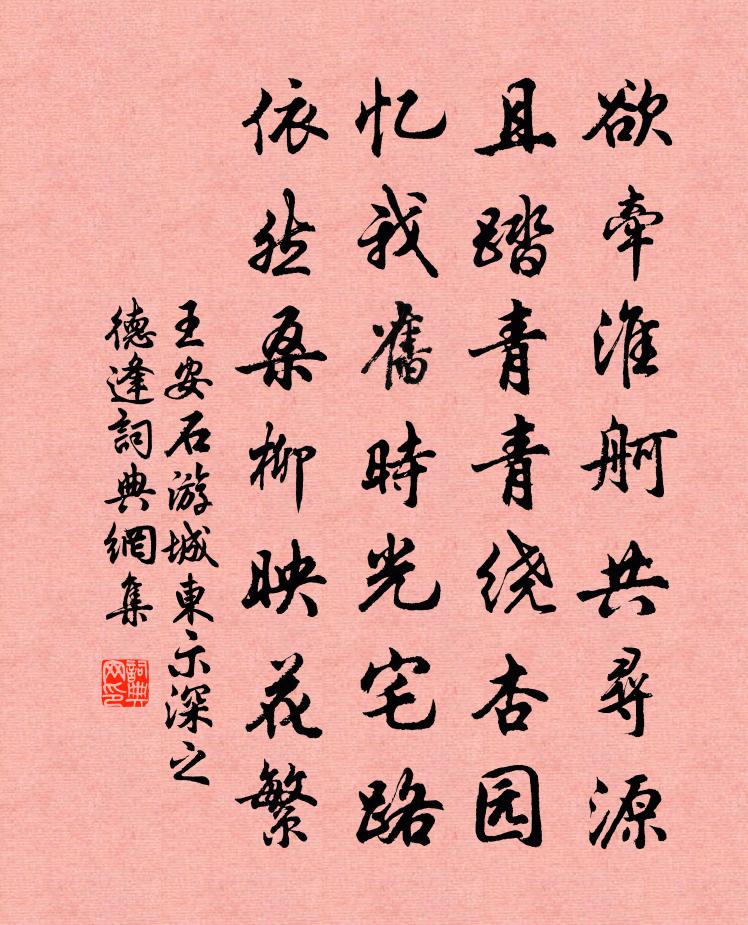 欲牵淮舸共寻源
且踏青青绕杏园
忆我舊時光宅路
依然桑柳映花繁
王安石游城東示深之
德逢詞典網集
詞典网印